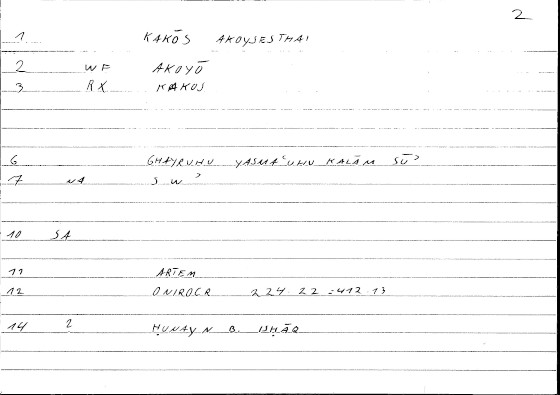 2
1 KAKŌS AKOYSESTHAI
2 WF AKOYŌ
3 RX KAKOS
6 GHAYRUHU YASMAʿUHU KALĀM SŪʾ
7 NA S Wʾ
10 SA
11 ARTEM
12 ONIROCR 224.22 = 412.13
14 2 ḤUNAYN B. ISḤĀQ